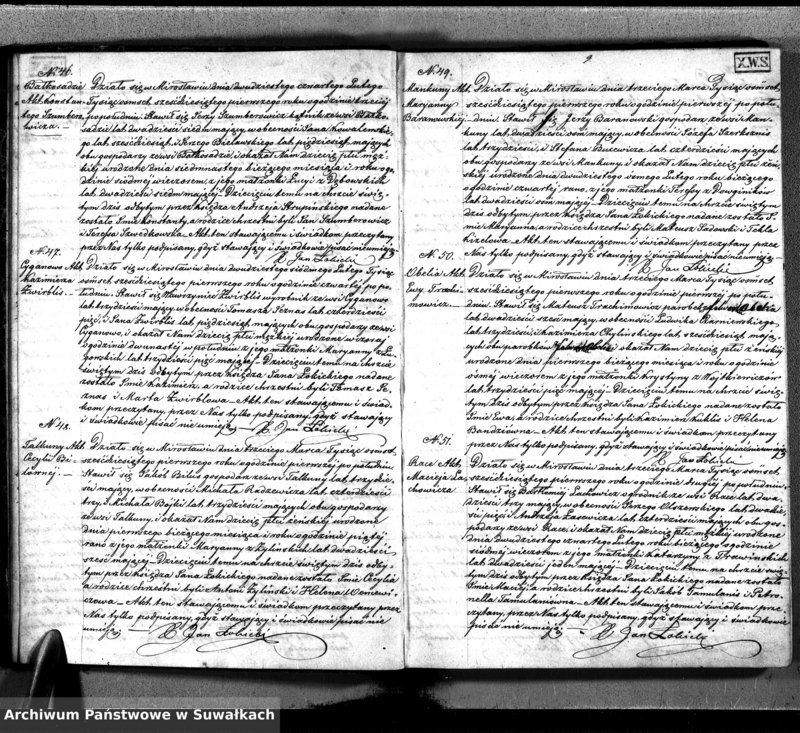 No 46.
Bałkosadzie Działo się w Mirosławiu dnia dwudziestego czwartego Lutego
Akt. Konstan- Tysiąc ośmset sześćdziesiątego pierwszego roku o godzinie trzeciej
tego Szumbero- po południu. Stawił się Jerzy Szumberowicz
wicza. lat dwadzieścia siedm mający, w obecności Jana Kowalewskiego
lat sześćdziesiąt i Jerzego Bielawskiego lat pięćdziesiąt mających
obu gospodarzy ze wsi Bałkosadzie, i okazał Nam dziecię płci męz-
kiej urodzone dnia siedmnastego bieżącego miesiąca i roku o go-
dzinie siódmej wieczorem z jego małżonki Łucyi z
lat dwadzieścia siedm mającej. Dziecięciu temu na chrzcie świę-
tym dziś odbytym przez Księdza Andrzeja Krupińskiego nadane
zostało Imie Konstanty, a rodzice chrzestni byli Jan Szumberowicz
i Teressa Szwedkowska. Akt ten stawającemu i świadkom przeczytany
przez Nas tylko podpisany, gdyż stawający i świadkowie pisać nieumieją
X Jan Łobicki
No 47.
Cyganowo Akt. Działo się w Mirosławiu dnia dwudziestego siódmego Lutego Tysiąc
Kazimierza ośmset sześćdziesiątego pierwszego roku o godzinie czwartej po po-
Zwirblis. łudniu. Stawił się Wawrzyniec Zwirblis wyrobnik ze wsi Cyganowo
lat trzydzieści mający, w obecności Tomasza Pernas lat czterdzieści
pięć, i Jana Zwirblis lat pięćdziesiąt mających obu gospodarzy ze wsi
Cyganowo, i okazał Nam dziecię płci męzkiej urodzone wczoraj
o godzinie dwunastej w południe z jego małżonki Maryanny z
lat trzydzieści pięć mającej. Dziecięciu temu na chrzcie
świętym dziś odbytym przez Księdza Jana Łobickiego nadane
zostało Imie Kazimierz, a rodzice chrzestni byli Tomasz Per-
nas i Marta Zwirblowa. Akt ten stawającemu i świad-
kom przeczytany, przez Nas tylko podpisany, gdyż stawający
i świadkowie pisać nie umieją. X Jan Łobicki
No 48.
Talkuny Akt. Działo się w Mirosławiu dnia trzeciego Marca Tysiąc ośmset
Cecylii Bi- sześćdziesiątego pierwszego roku o godzinie pierwszej po południu
Stawił się Jakób Bilus gospodarz ze wsi Talkuny lat trzydzie-
ści mający, w obecności Michała Radzewicza lat czterdzieści
trzy, i Michała Bojki lat trzydzieści mających obu gospodarzy
ze wsi Talkuny, i okazał Nam dziecię płci żeńskiej urodzone
dnia pierwszego bieżącego miesiąca i roku o godzinie piątej
rano z jego małżonki Maryanny z Żylińskich lat dwadzieścia
sześć mającej. Dziecięciu temu na chrzcie świętym dziś odby-
tym przez Księdza Jana Łobickiego nadane zostało Imie Cecylia
a rodzice chrzestni byli Antoni Żyliński i Helena
Akt ten stawającemu i świadkom przeczytany przez
Nas tylko podpisany, gdyż stawający i świadkowie pisać nie
umieją. X Jan Łobicki
9
X.W.S.
No 49.
Mankuny Akt. Działo się w Mirosławiu dnia trzeciego Marca Tysiąc ośmset
Maryanny sześćdziesiątego pierwszego roku o godzinie pierwszej po połu-
Baranowskiej. dniu. Stawił się Jerzy Baranowski gospodarz ze wsi Man-
kuny lat dwadzieścia ośm mający, w obecności Józefa
lat trzydzieści, i Stefana lat czterdzieści mających
obu gospodarzy ze wsi Mankuny i okazał Nam dziecię płci żeń-
skiej urodzone dnia dwudziestego ósmego Lutego roku bieżącego
o godzinie czwartej rano, z jego małżonki Teressy z
lat dwadzieścia ośm mającej. Dziecięciu temu na chrzcie świętym
dziś odbytym przez Księdza Jana Łobickiego nadane zostało I-
mie Maryanna, a rodzice chrzestni byli Mateusz Sadowski i Tekla
Akt ten stawającemu i świadkom przeczytany przez
Nas tylko podpisany, gdyż stawający i świadkowie pisać nieumieją
X Jan Łobicki
No 50.
Obelia Akt Działo się w Mirosławiu dnia trzeciego Marca Tysiąc ośmset
Ewy Trochi- sześćdziesiątego pierwszego roku o godzinie pierwszej po połu-
mowicz. dniu. Stawił się Mateusz Trochimowicz parobek
lat dwadzieścia sześć mający, w obecności Ludwika
lat trzydzieści i Kazimierza lat sześćdziesiąt mają-
cych obu parobków i okazał Nam dziecię płci żeńskiej
urodzone dnia pierwszego bieżącego miesiąca i roku o godzinie
ósmej wieczorem z jego małżonki Krystyny z Wojtkiewiczów
lat trzydzieści pięć mającej. Dziecięciu temu na chrzcie świę-
tym dziś odbytym przez Księdza Jana Łobickiego nadane zostało
Imie Ewa, a rodzice chrzestni byli Kazimierz Kuklis i Helena
Akt ten stawającemu i świadkom przeczytany
przez Nas tylko podpisany, gdyż stawający i świadkowie pisać nieumieją
X Jan Łobicki
No 51.
Race Akt. Działo się w Mirosławiu dnia trzeciego Marca Tysiąc ośmset
Macieja La- sześćdziesiątego pierwszego roku o godzinie drugiej po południu.
chowicza Stawił się Bartłomiej Lachowicz ogrodnik ze wsi Race lat dwa-
dzieścia trzy mający, w obecności Jerzego Olszewskiego lat dwadzie-
ścia pięć i Andrzeja lat czterdzieści mających obu gos-
podarzy ze wsi Race, i okazał Nam dziecię płci męzkiej urodzone
dnia dwudziestego czwartego Lutego roku bieżącego o godzinie
siódmej wieczorem z jego małżonki Katarzyny z
lat dwadzieścia jeden mającej. Dziecięciu temu na chrzcie świę-
tym dziś odbytym przez Księdza Jana Łobickiego nadane zostało
Imie Maciej, a rodzice chrzestni byli Jakób Tamulanis i Petro-
nella Tamulaniówna. Akt ten stawającemu i świadkom prze-
czytany, przez Nas tylko podpisany, gdyż stawający i świadkowie
pisać nie umieją. X Jan Łobicki
Archiwum Państwowe w Suwałkach